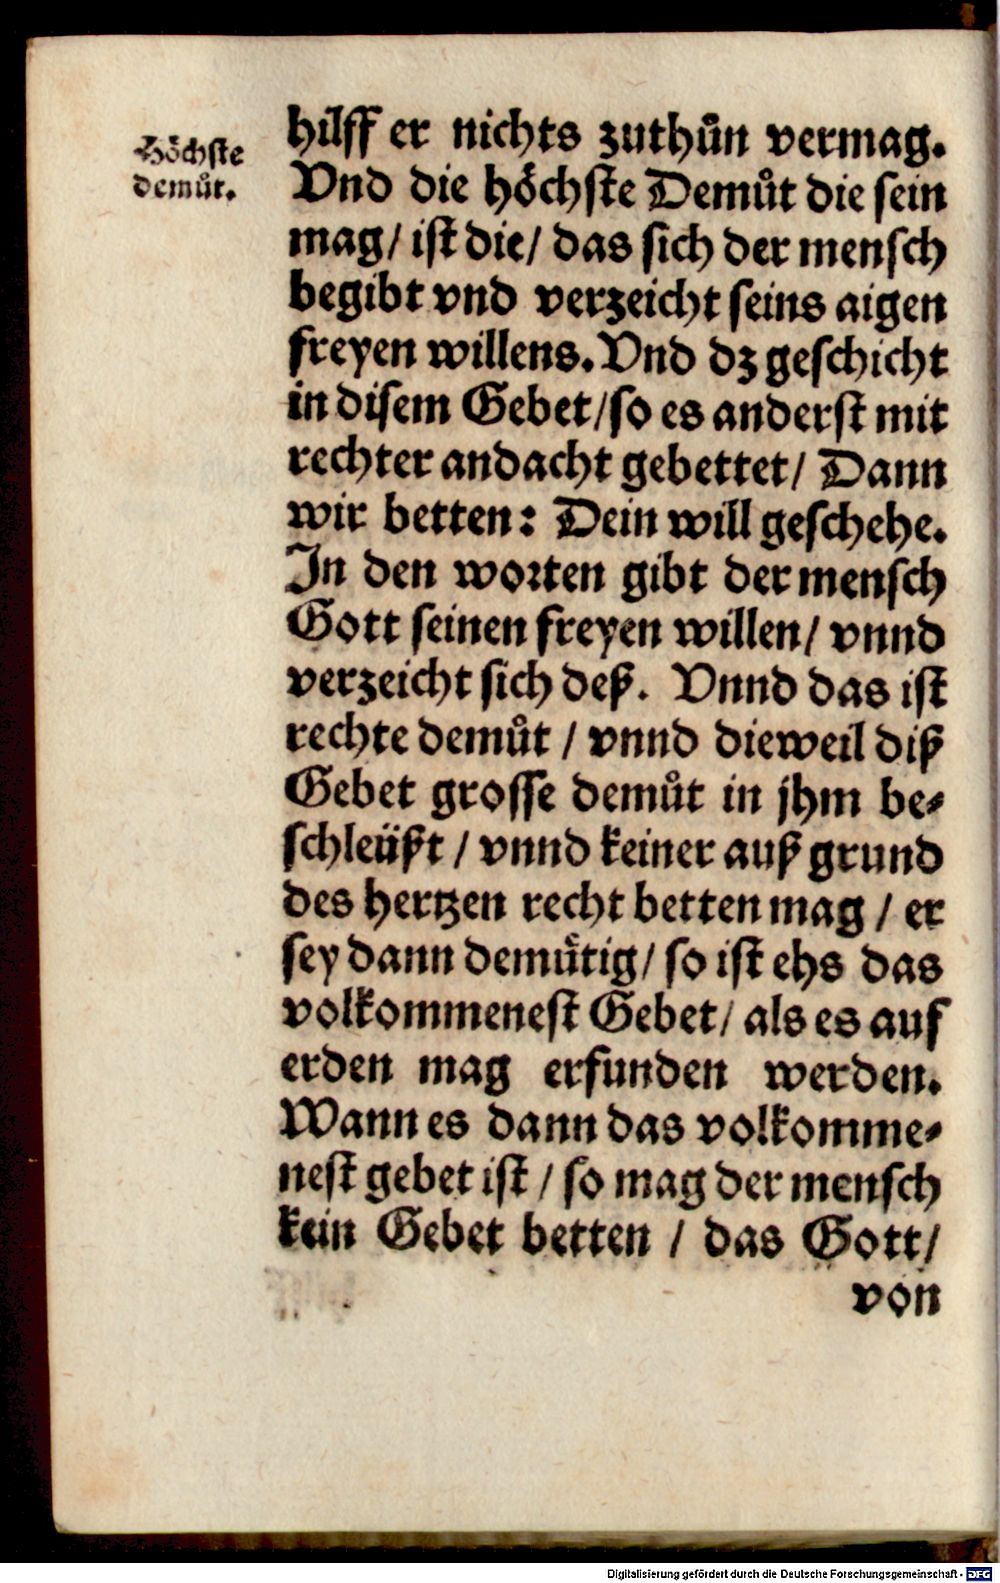 Höchste
demuͦt.
hilff er nichts zuthuͦn vermag.
Vnd die höchste Demuͦt die sein
mag/ ist die/ das sich der mensch
begibt vnd verzeicht seins aigen
freyen willens. Vnd dz geschicht
in disem Gebet/so es anderst mit
rechter andacht gebettet/ Dann
wir betten: Dein will geschehe.
In den worten gibt der mensch
Gott seinen freyen willen/ vnnd
verzeicht sich deß. Vnnd das ist
rechte demuͦt / vnnd dieweil diß
Gebet grosse demuͦt in jhm be-
schleüßt / vnnd keiner auß grund
des hertzen recht betten mag / er
sey dann demuͤtig/ so ist ehs das
volkommenest Gebet/ als es auf
erden mag erfunden werden.
Wann es dann das volkomme-
nest gebet ist / so mag der mensch
kein Gebet betten / das Gott/
von
Digitalisierung gefördert durch die Deutsche Forschungsgemeinschaft - DFG